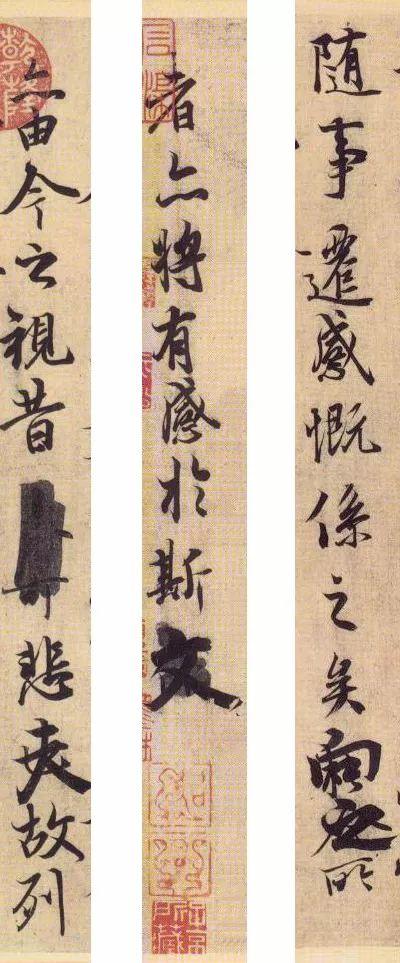 随事遷感慨係之矣向之所
者亦將有感於斯文
亦由今之視昔悲夫故列